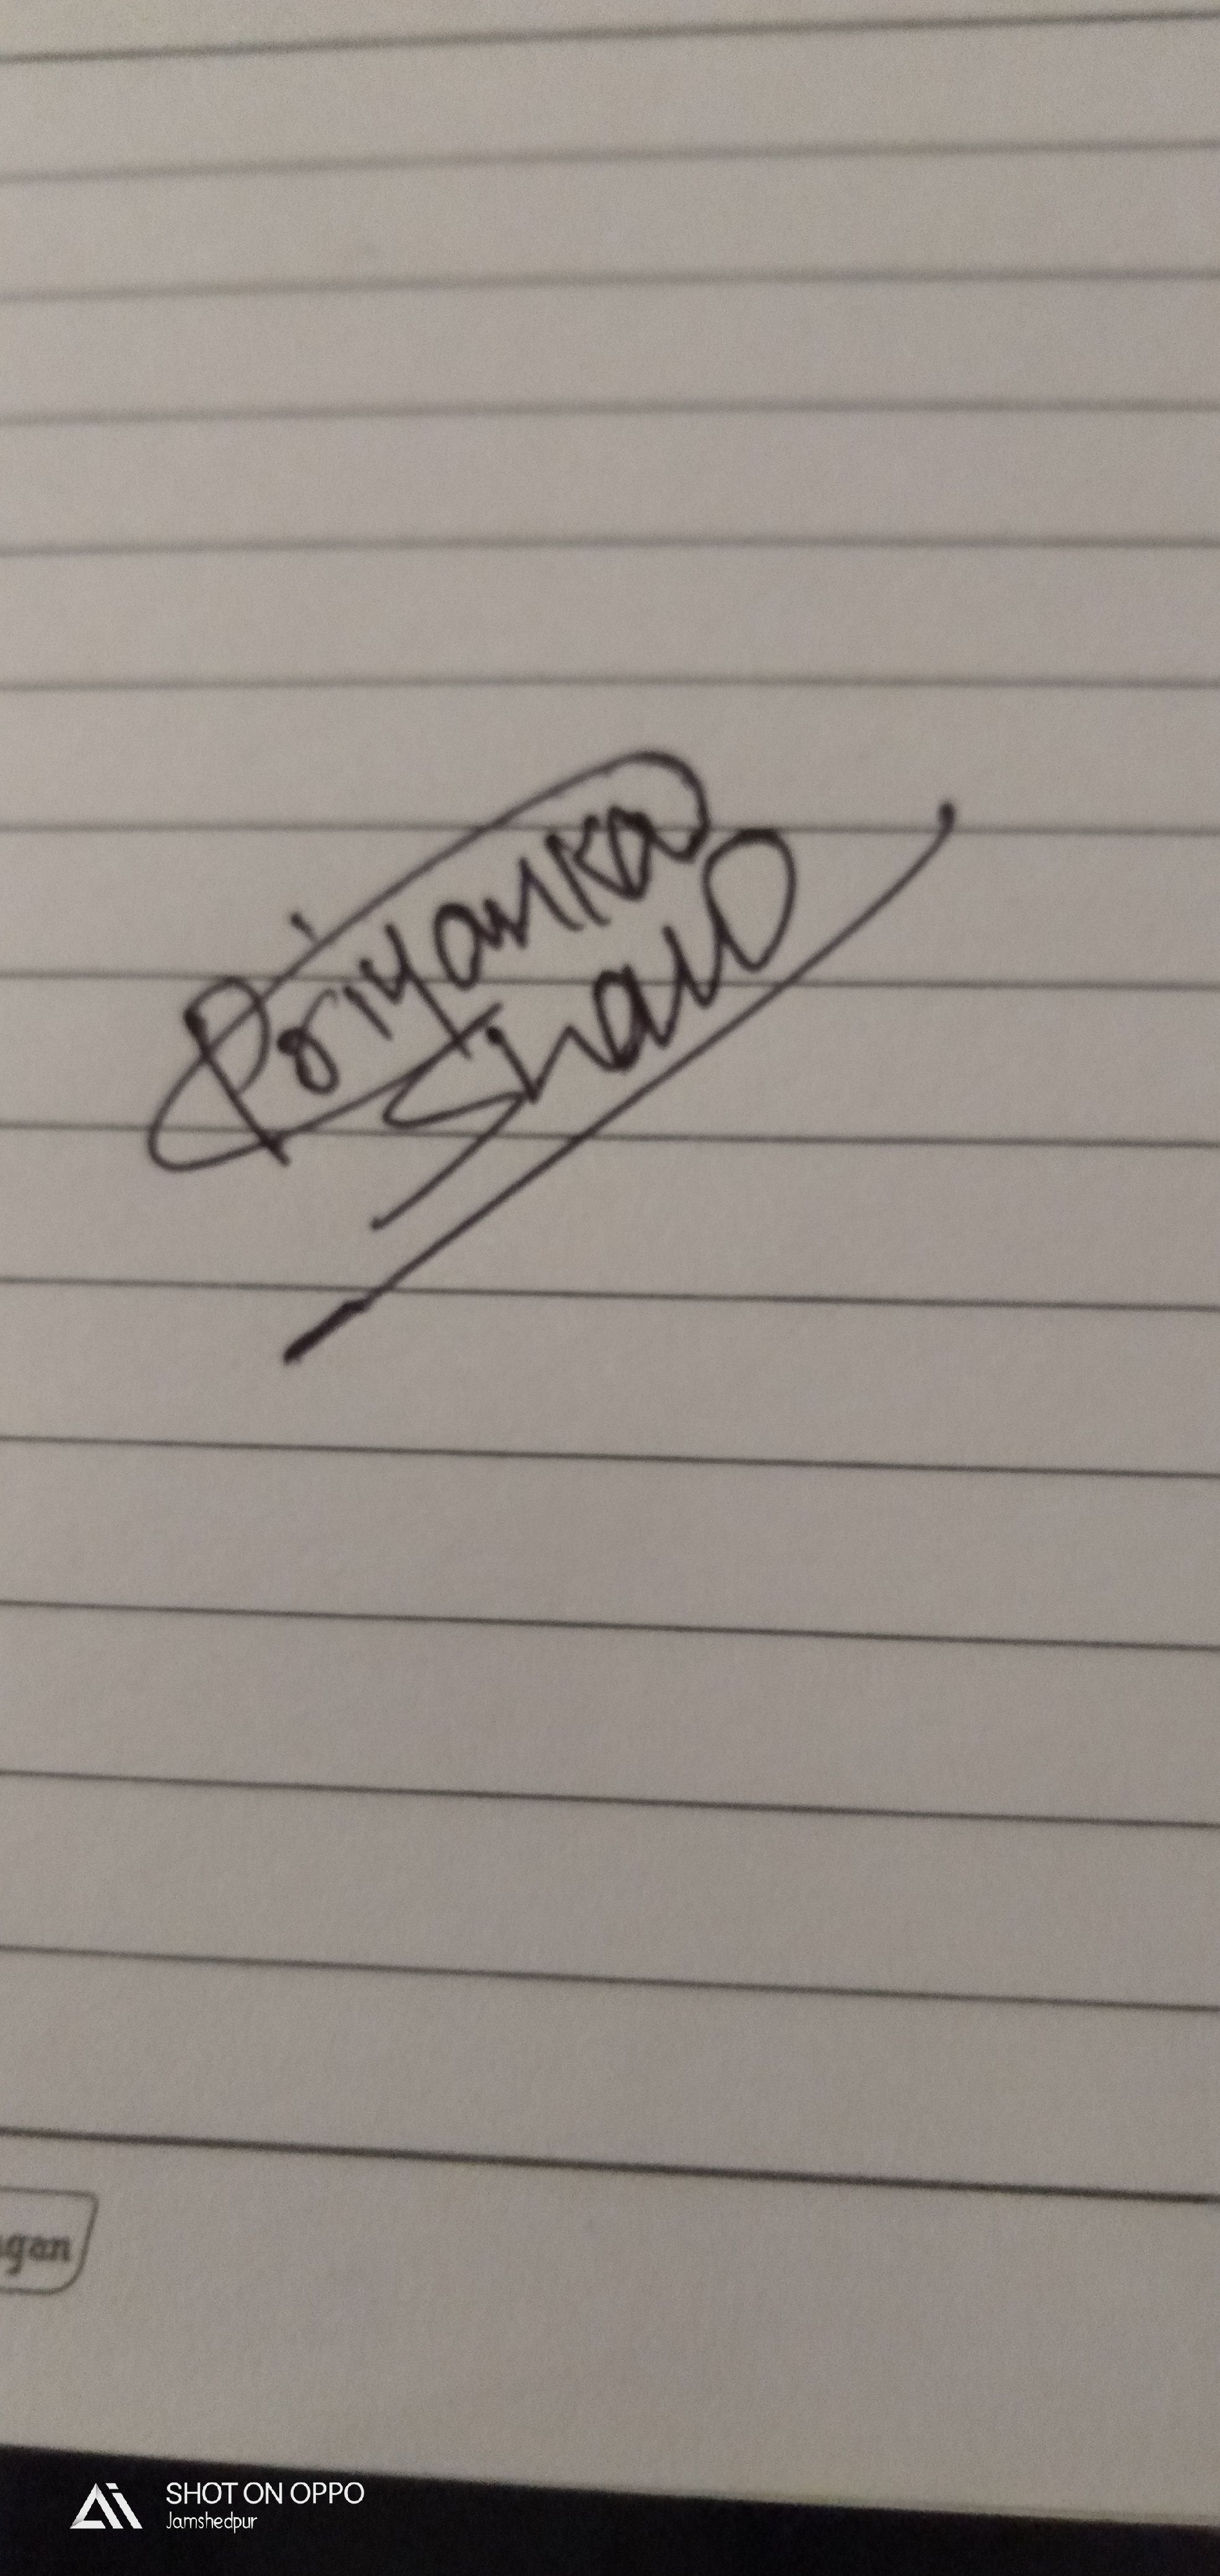 Priyanka
Shaw
gan
SHOT ON OPPO
Jamshedpur